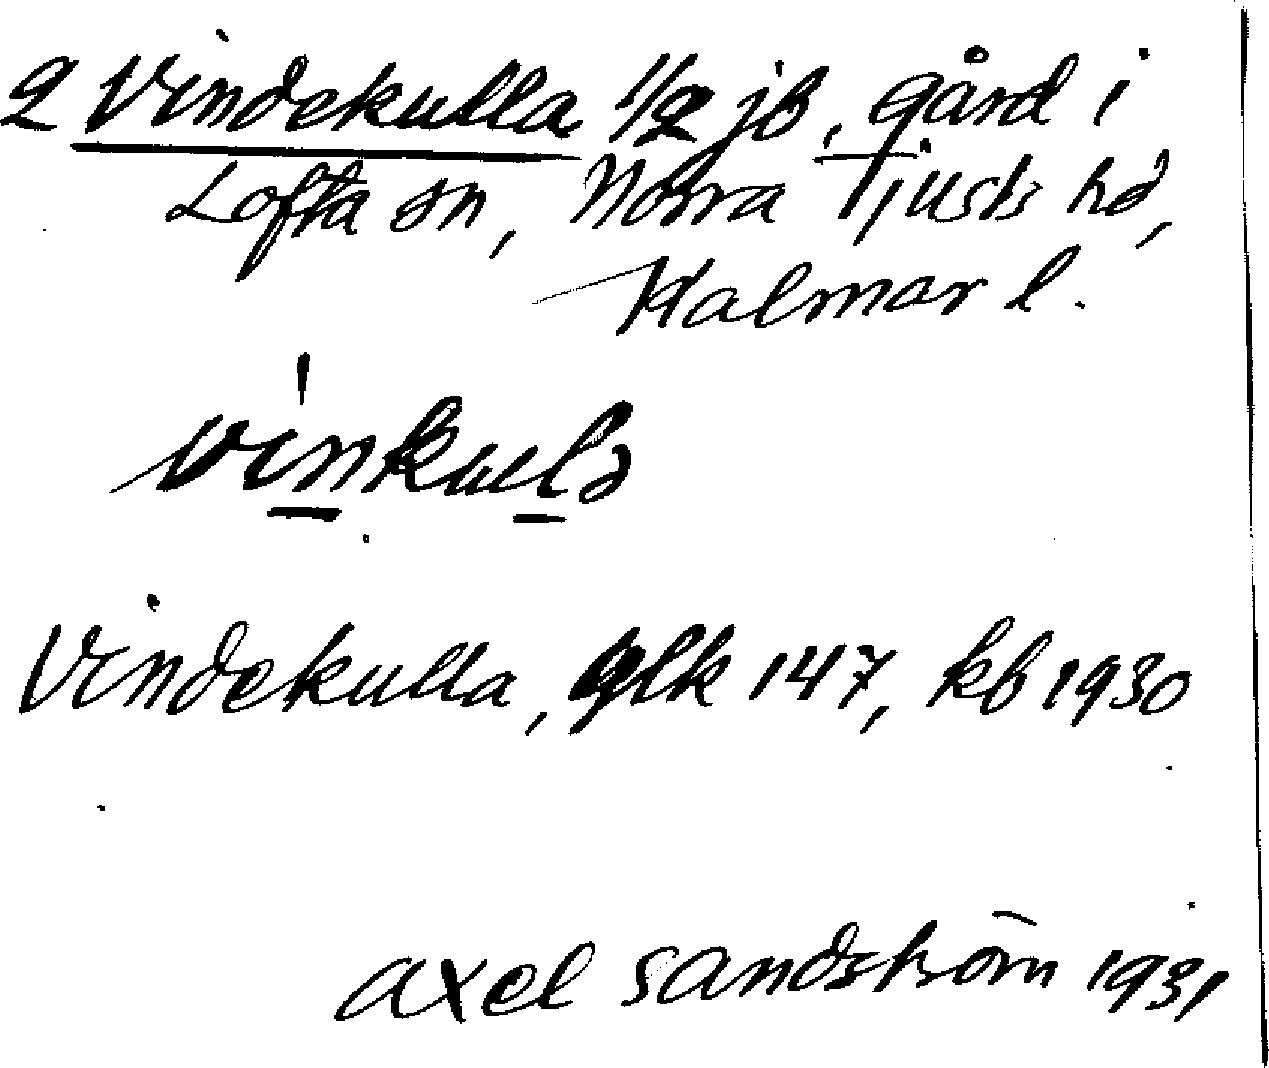 2 Vindekulla 1/2 jb, gård i
Lofta sn, Norra Tjusts hd,
Kalmar l.
Vindekulla, glk 147, kb 1930
Axel Sandström 1931